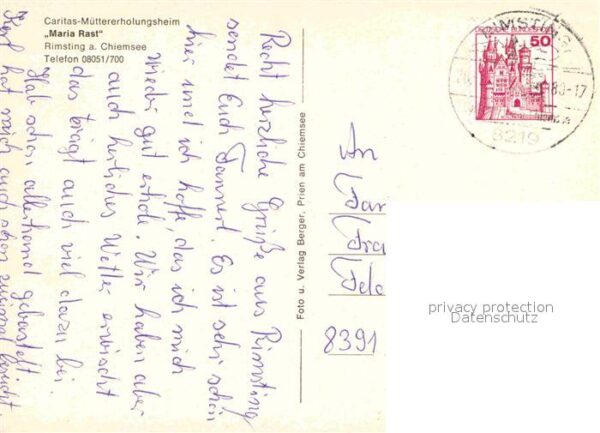 Caritas-Müttererholungsheim
„Maria Rast"
Rimsting a. Chiemsee
Telefon 08051/700
Recht herzliche Grüße aus Rimsting
sendet Euch Annerl. Es ist sehr schön
hier und ich hoffe, das ich mich
wieder gut erhole. Wir haben aber
auch herrliches Wetter erwischt
das trägt auch viel dazu bei.
Hab schon allerhand gebastelt
hat mich auch schon zweimal besucht.
Foto u. Verlag Berger, Prien am Chiemsee
An
Fam
Fra
8391
DEUTSCHE BUNDESPOST
50
RIMSTING
8219
privacy protection
Datenschutz